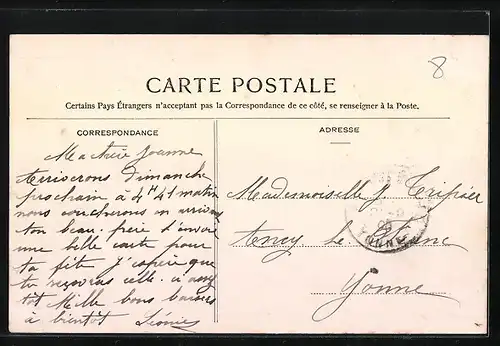 8
CARTE POSTALE
Certains Pays Étrangers n'acceptant pas la Correspondance de ce côté, se renseigner à la Poste.
CORRESPONDANCE
ADRESSE
Ma chère Joanne
arriverons Dimanche
prochain à 4H 41 matin
nous coucherons en arrivant
ton beau-frère t'envoie
une belle carte pour
ta fête j'espère que
tu recevras celle-ci
tôt Mille bons baisers
à bientôt Léonie
Mademoiselle J Tripier
Ancy Le
Yonne
YONNE